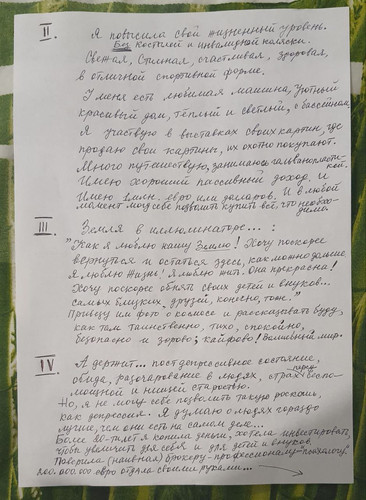 II. Я повысила свой жизненный уровень.
Без костылей и инвалидной коляски.
Свежая, Сильная, счастливая, здоровая,
в отличной спортивной форме.
У меня есть любимая машина, уютный
красивый дом, тёплый и светлый, с бассейном.
Я участвую в выставках своих картин, где
продаю свои картины, их охотно покупают.
Много путешествую, занимаюсь гальванопласти-
кой.
Имею хороший пассивный доход, и
Имею 1 млн. евро или долларов. И в любой
момент могу себе позволить купить всё, что необхо-
димо.
III Земля в иллюминаторе... :
"Как я люблю нашу Землю! Хочу поскорее
вернуться и остаться здесь, как можно дольше
Я люблю Жизнь! Я люблю жить. Она прекрасна!
Хочу поскорее обнять своих детей и внуков...
самых близких друзей, конечно, тоже."
Привезу им фото о космосе и рассказывать буду,
как там таинственно, тихо, спокойно,
безопасно и здорово; кайфово! Волшебный мир.
IV А держит... постдепрессивное состояние,
обида, разочарование в людях, страх перед беспо-
мощной и нищей старостью.
Но, я не могу себе позволить такую роскошь,
как депрессия. Я думаю о людях гораздо
лучше, чем они есть на самом деле...
Более 20-ти лет я копила деньги, хотела инвестировать
чтобы увеличить для себя и для детей и внуков.
Поверила (наивная) брокеру - профессионалу - "психологу."
200.000.000 евро отдала своими руками...